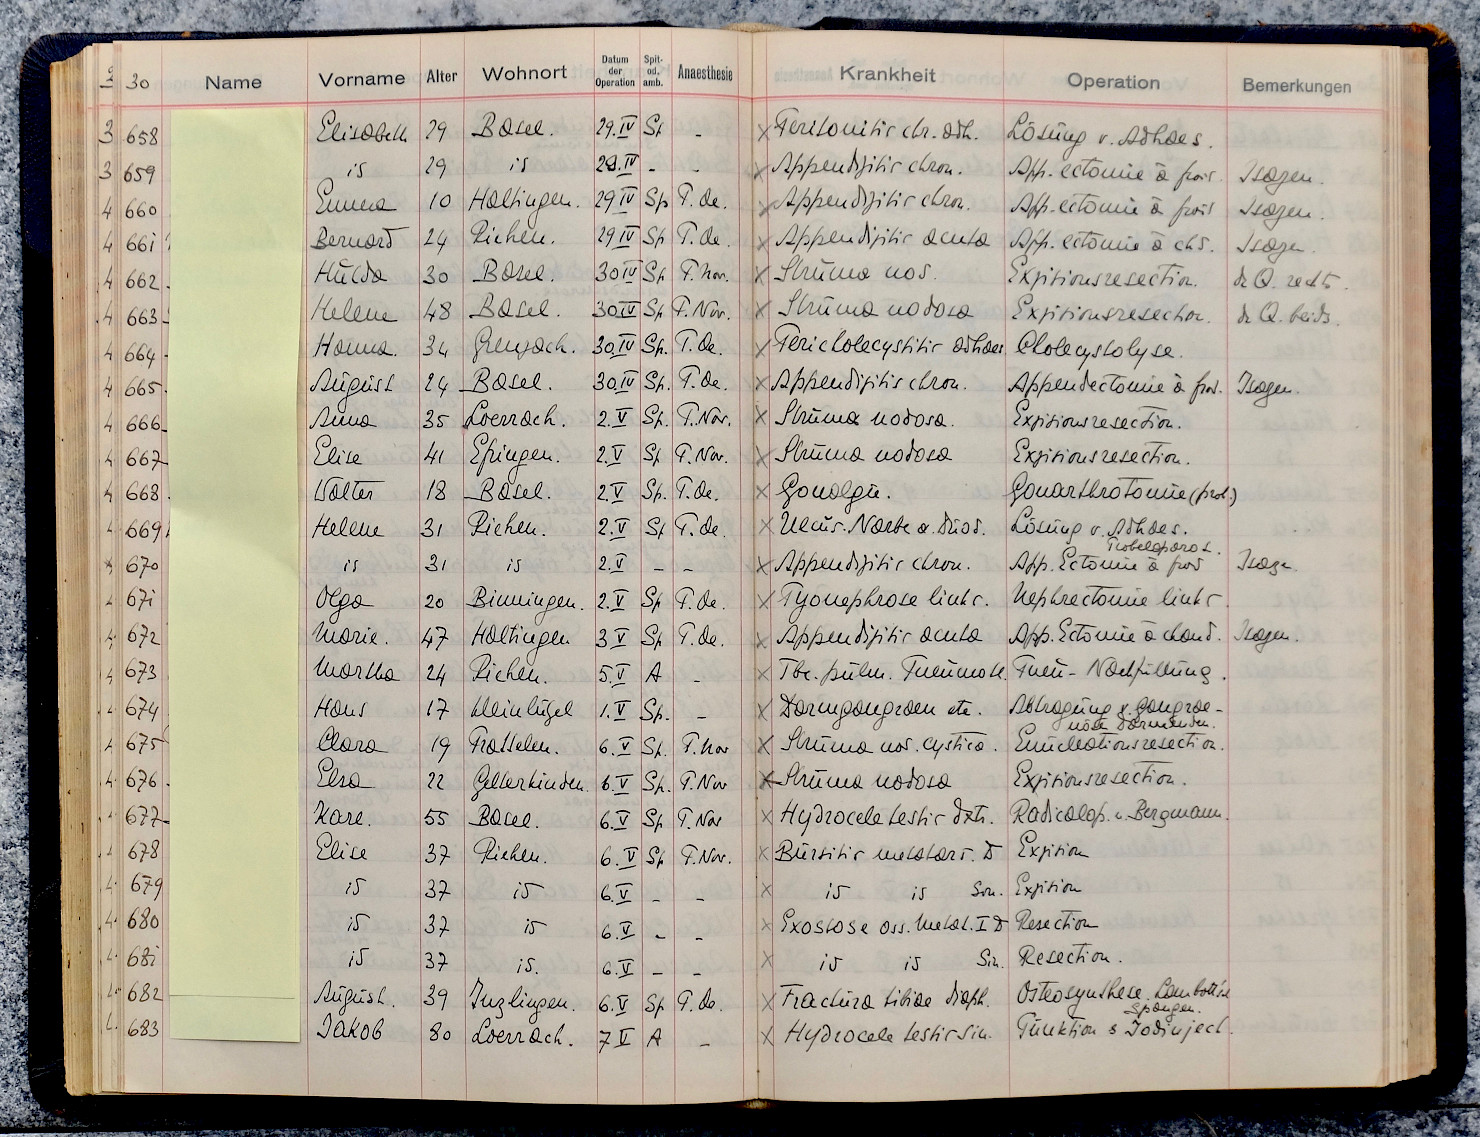 30 Name Vorname Alter Wohnort Datum der Operation Spit- od. amb. Anaesthesie Krankheit Operation Bemerkungen
3 658 Elisabeth 29 Basel. 29.IV Sp - x Peritonitis chr. adh. Lösung v. Adhaes.
3 659 is 29 is 29.IV - - x Appendizitis chron. App. ectomie à froid. Isogen.
4 660 Emma 10 Haltingen. 29 IV Sp P. Ae. x Appendizitis chron. App. ectomie à froid Isogen.
4 661 Bernard 24 Riehen. 29 IV Sp P. Ae. x Appendizitis acuta App. ectomie à chd. Isogen.
4 662 Hulda 30 Basel. 30 IV Sp P. Nov. x Struma nod. Expitionsresection. d. Q. rechts.
4 663 Helene 48 Basel. 30 IV Sp P. Nov. x Struma nodosa Expitionsresection. d. Q. beids.
4 664 Hanna. 34 Grenzach. 30.IV Sp. P. Ae. x Pericholecystitis adhaes. Cholecystolyse.
4 665 August 24 Basel. 30.IV Sp. P. Ae. x Appendizitis chron. Appendectomie à froid. Isogen.
4 666 Anna 35 Loerrach. 2.V Sp. P. Nov. x Struma nodosa. Expitionsresection.
4 667 Elise 41 Efringen. 2.V Sp P. Nov. x Struma nodosa Expitionsresection.
4 668 Walter 18 Basel. 2.V Sp. P. Ae. x Gonalgie. Gonarthrotomie (prob.)
4 669 Helene 31 Riehen. 2.V Sp P. Ae. x Ulcus-Narbe a. Duod. Lösung v. Adhaes.
Probelaparot.
4 670 is 31 is 2.V - - x Appendizitis chron. App. Ectomie à froid Isogen.
4 671 Olga 20 Binningen. 2.V Sp P. Ae. x Pyonephrose links. Nephrectomie links.
4 672 Marie. 47 Haltingen 3 V Sp P. Ae. x Appendizitis acuta App. Ectomie à chaud. Isogen.
4 673 Martha 24 Riehen. 5.V A - x Tbc. pulm. Pneumoth. Pneu-Nachfüllung.
4 674 Hans 17 Kleinlützel 1.V Sp. - x Darmgangraen etc. Abtragung v. Gangrae-
nöse Darmenden.
4 675 Clara 19 Pratteln. 6.V Sp. P. Nov x Struma nod. cystica. Enucleationsresection.
4 676 Elsa 22 Gelterkinden. 6.V Sp. P. Nov x Struma nodosa Expitionsresection.
4 677 Karl. 55 Basel. 6.V Sp P. Nov x Hydrocele testis dxtr. Radicalop. v. Bergmann.
4 678 Elise 37 Riehen. 6.V Sp P. Nov. x Bursitis metatars. D Expition
4 679 is 37 is 6.V - - x is is Sin. Expition
4 680 is 37 is 6.V - - x Exostose oss. Metat. I D Resection
4 681 is 37 is. 6.V - - x is is Sin. Resection.
4 682 August. 39 Inzlingen. 6.V Sp P. Ae. x Fractura tibiae diaph. Osteosynthese. Lambott'sche
Spangen.
4 683 Jakob 80 Loerrach. 7 V A - x Hydrocele testis sin. Punktion & Jodinject.